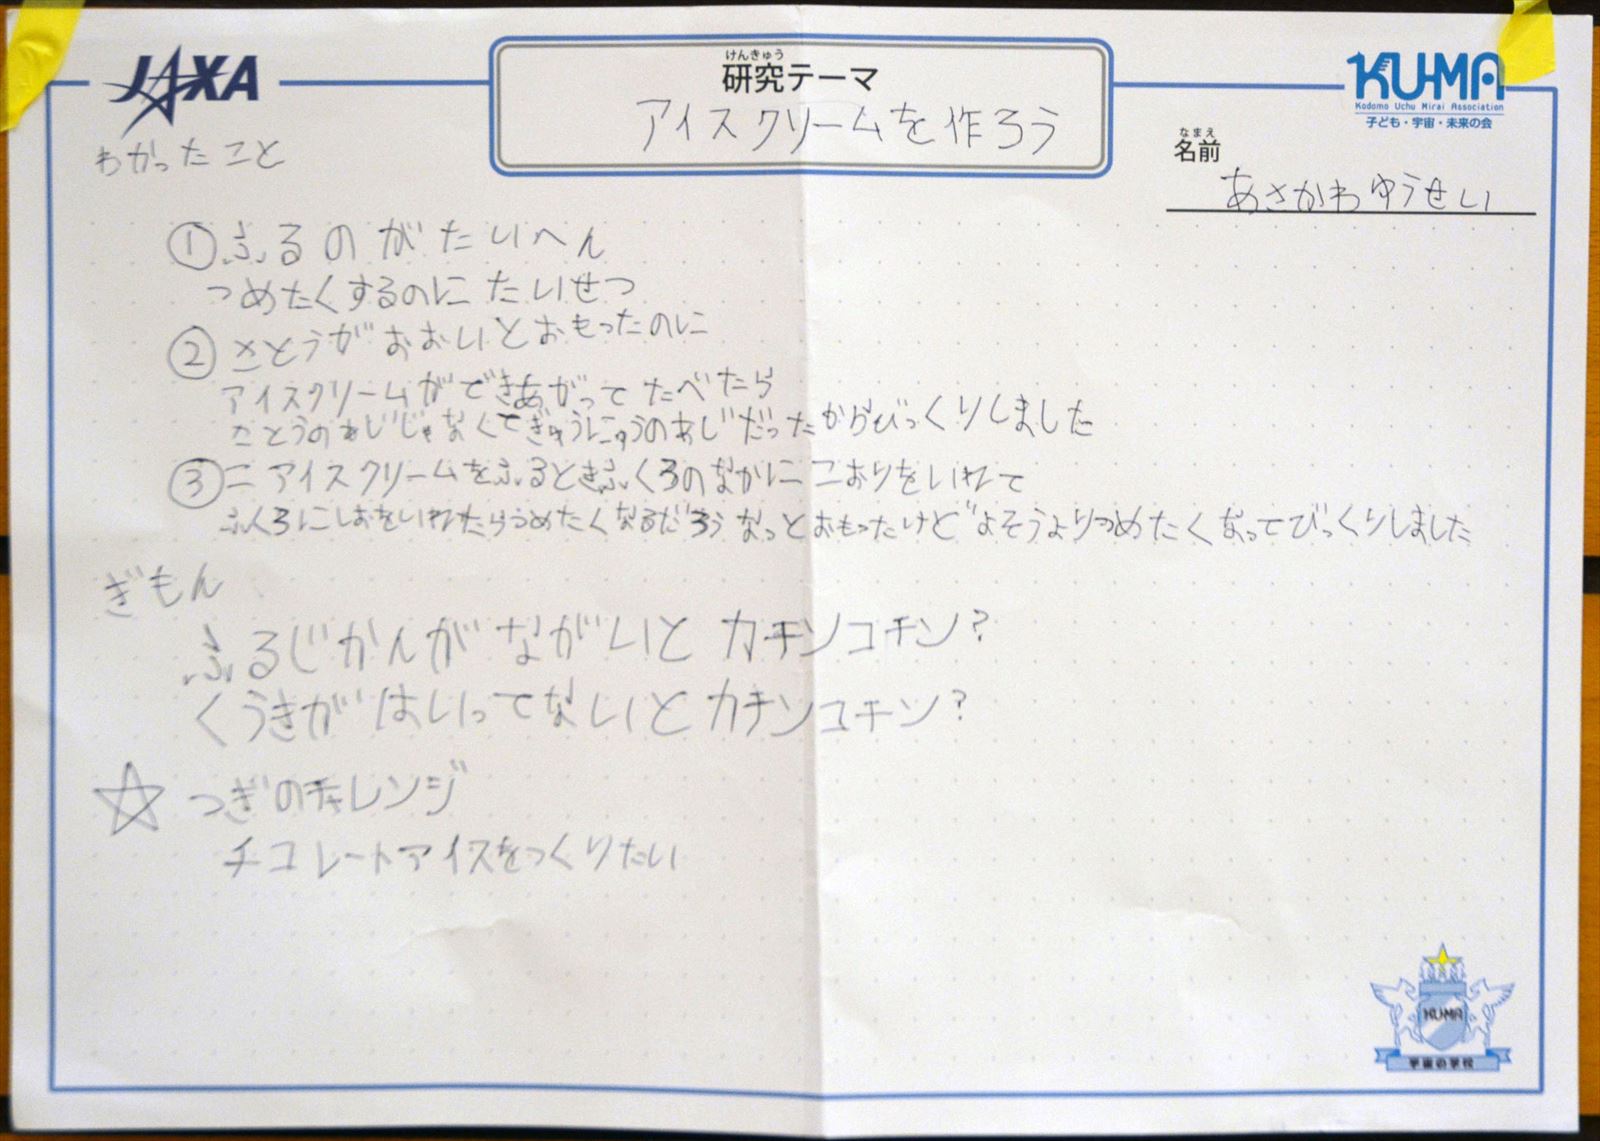 JAXA
けんきゅう
研究テーマ
アイスクリームを作ろう
KU-MA
Kodomo Uchu Mirai Association
子ども・宇宙・未来の会
なまえ
名前
あさかわゆうせい
わかったこと
①ふるのがたいへん
つめたくするのにたいせつ
②さとうがおおいとおもったのに
アイスクリームができあがってたべたら
さとうのあじじゃなくてぎゅうにゅうのあじだったからびっくりしました
③ニアイスクリームをふるときふくろのなかにこおりをいれて
ふくろにしおをいれたらつめたくなるだろうなっとおもったけどよそうよりつめたくなってびっくりしました
ぎもん
ふるじかんがながいとカチンコチン?
くうきがはいってないとカチンコチン?
☆つぎのチャレンジ
チコレートアイスをつくりたい
KU-MA
宇宙の学校